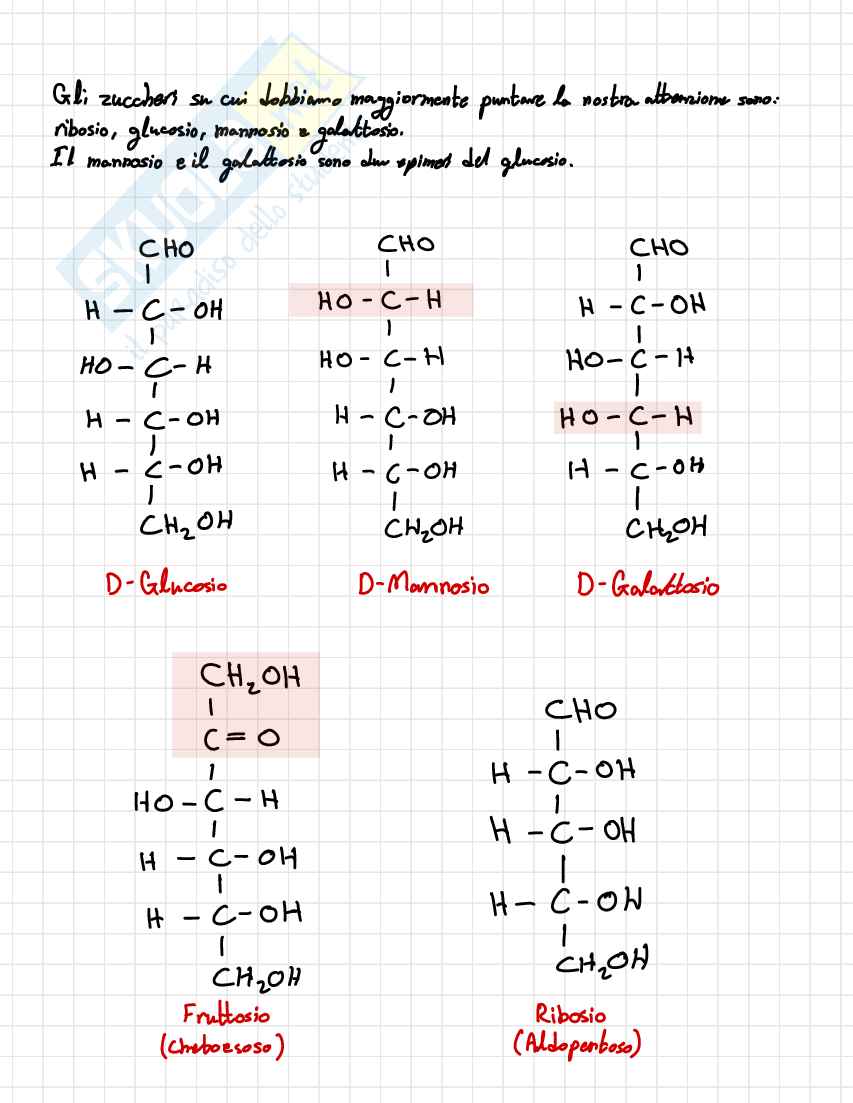 Gli zuccheri su cui dobbiamo maggiormente puntare la nostra attenzione sono:
ribosio, glucosio, mannosio e galattosio.
Il mannosio e il galattosio sono due epimeri del glucosio.
SKUOLA.net
il paradiso dello studente
CHO
H - C - OH
HO - C - H
H - C - OH
H - C - OH
CH₂OH
D-Glucosio
CHO
HO - C - H
HO - C - H
H - C - OH
H - C - OH
CH₂OH
D-Mannosio
CHO
H - C - OH
HO - C - H
HO - C - H
H - C - OH
CH₂OH
D-Galattosio
CH₂OH
C = O
HO - C - H
H - C - OH
H - C - OH
CH₂OH
Fruttosio
(chetoesoso)
CHO
H - C - OH
H - C - OH
H - C - OH
CH₂OH
Ribosio
(Aldopentoso)